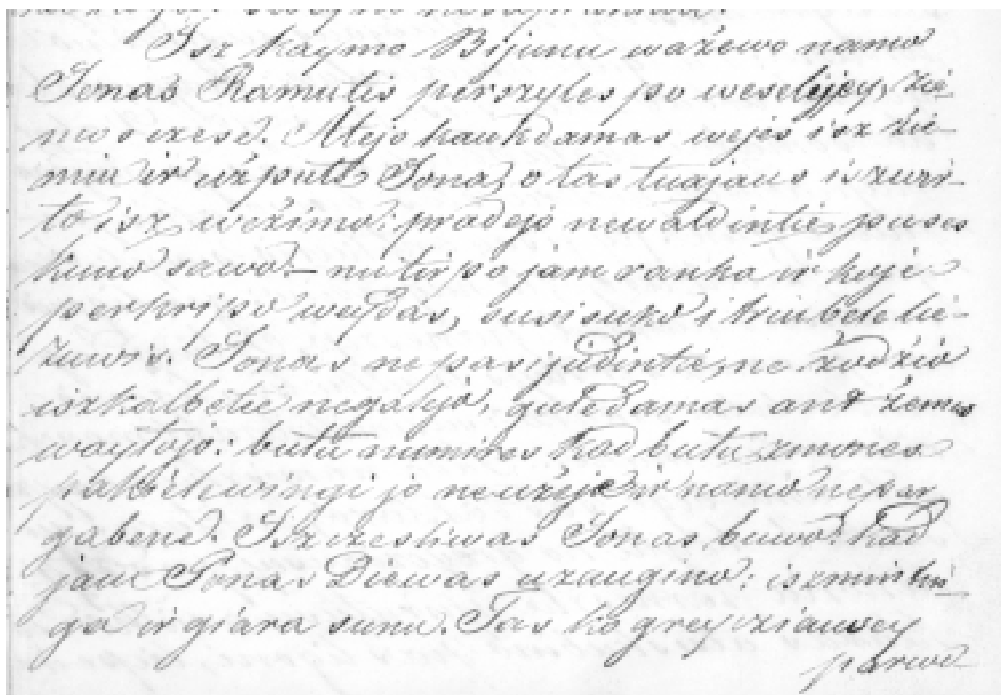 Isz kaymo Bijunu ważewo namo
Jonas Ramutis perszyles po weselijey, żie-
mos czese. Atejo kaukdamas wejes isz żie-
miu ir użputė Jona, o tas tuojaus iszwir-
to isz weżimo: pradejo newaldintie puses
kuno sawo – nutirpo jam ranka ir koje
perkripo weydas, susisuko i trinbele lie-
żuwis. Jonas ne pasijudintie, ne żodzio
iszkalbetie negalejo, guledamas ant żemes
waytojo: butu numires kad butu zmones
pabėkwingi jo neużeje ir namo nepar
gabenę. Szczesliwas Jonas buwo: kad
jam Ponas Diewas uzaugino: iszmintin-
ga ir giara sunu. Tas ko greycziausey
parwe